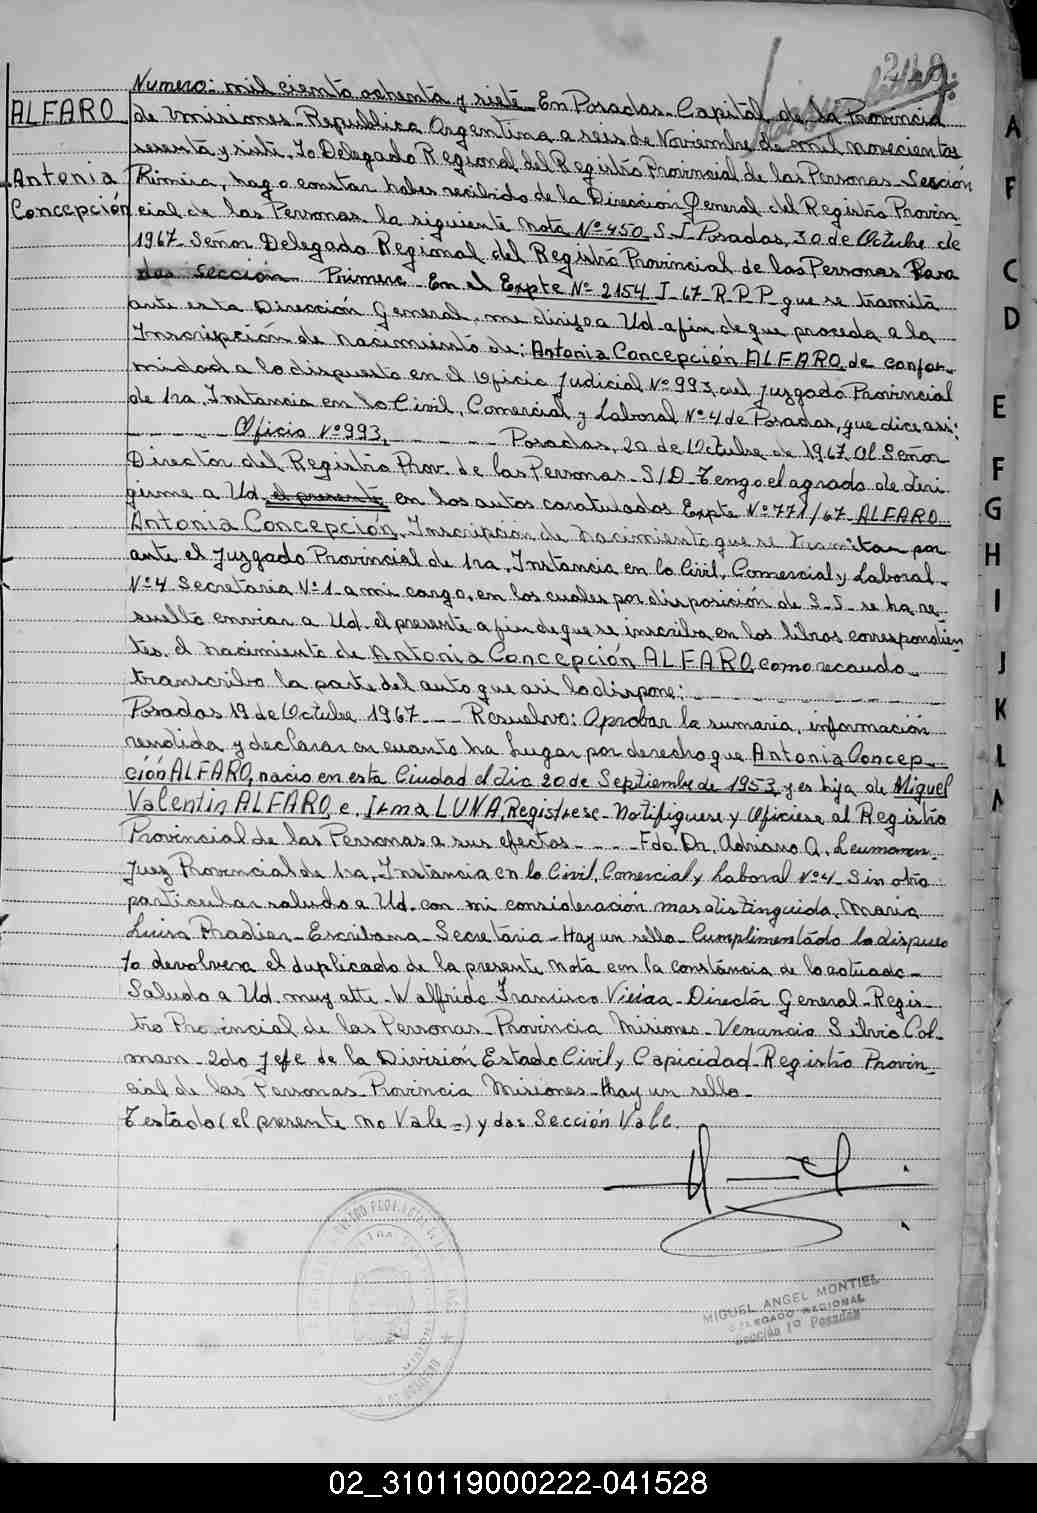 249
ALFARO
Antonia
Concepción
Numero: mil ciento ochenta y siete En Posadas Capital de la Provincia
de Misiones Republica Argentina a seis de Noviembre de mil novecientos
sesenta y siete. Yo Delegado Regional del Registro Provincial de las Personas Sección
Primera, hago constar haber recibido de la Dirección General del Registro Provin-
cial de las Personas la siguiente nota Nº 450 S I Posadas, 30 de Octubre de
1967 Señor Delegado Regional del Registro Provincial de las Personas Para
das Sección Primera En el Expte Nº 2154 I 67 R P P que se tramita
ante esta Dirección General, me dirijo a Ud a fin de que proceda a la
Inscripción de nacimiento de: Antonia Concepción ALFARO, de confor-
midad a lo dispuesto en el Oficio Judicial Nº 993, del Juzgado Provincial
de 1ra, Instancia en lo Civil, Comercial y Laboral Nº 4 de Posadas, que dice asi:
Oficio Nº 993, Posadas, 20 de Octubre de 1967 Al Señor
Director del Registro Prov. de las Personas S/D Tengo el agrado de diri
girme a Ud, el presente en los autos caratulados Expte Nº 771/67 ALFARO
Antonia Concepción, Inscripción de nacimiento que se tramitan por
ante el Juzgado Provincial de 1ra, Instancia en lo Civil, Comercial y Laboral
Nº 4 Secretaria Nº 1 a mi cargo, en los cuales por disposición de S.S. se ha re-
suelto enviar a Ud, el presente a fin de que se inscriba en los libros correspondien
tes, el nacimiento de Antonia Concepción ALFARO como recaudo
transcribo la parte del auto que asi lo dispone:
Posadas 19 de Octubre 1967 Resuelvo: Aprobar la sumaria, información
rendida y declarar en cuanto ha lugar por derecho que Antonia Concep-
ción ALFARO, nacio en esta Ciudad el dia 20 de Septiembre de 1953 y es hija de Miguel
Valentin ALFARO, e, Irma LUNA, Registrese Notifiquese y Oficiese al Registro
Provincial de las Personas a sus efectos Fdo Dr, Adriano Q,
Juez Provincial de 1ra, Instancia en lo Civil, Comercial y Laboral Nº 4 Sin otro
particular saludo a Ud. con mi consideración mas distinguida, Maria
Luisa Escribana Secretaria Hay un sello Cumplimentado lo dispues
to devolvera el duplicado de la presente nota con la constancia de lo actuado
Saludo a Ud. muy atte Walfrido Francisco Director General Regis-
tro Provincial de las Personas Provincia Misiones Venancio Silvio Col-
man 2do Jefe de la División Estado Civil y Capicidad Registro Provin-
cial de las Personas Provincia Misiones Hay un sello
Testado (el presente no Vale =) y das Sección Vale.
MIGUEL ANGEL MONTIEL
DELEGADO REGIONAL
Sección 1º Posadas
A
F
C
D
E
F
G
H
I
J
K
L
02_310119000222-041528